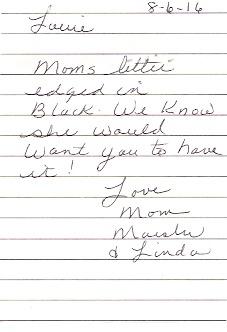 8-6-16
Louie
Moms letter
edged in
Black. We Know
she would
want you to have
it!
Love
Mom
& Linda